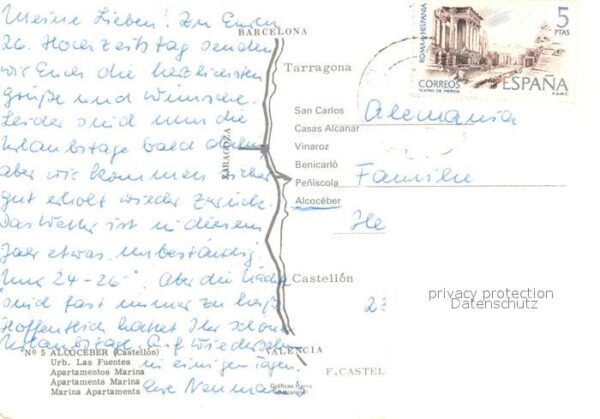 Meine Lieben! Zu Eurem
26. Hochzeitstag senden
wir Euch die herzlichsten
Grüße und Wünsche.
Leider sind nun die
Urlaubstage bald dahin,
aber wir kommen sicher
gut erholt wieder zurück.
Das Wetter ist in diesem
Jahr etwas unbeständig.
Nur 24-26°. Aber die Nächte
sind fast immer zu heiß.
Hoffentlich hattet Ihr schöne
Urlaubstage. Auf Wiedersehn
in einigen Tagen.
Eure
BARCELONA
Tarragona
ZARAGOZA
San Carlos
Casas Alcanar
Vinaroz
Benicarló
Peñíscola
Alcocéber
Castellón
VALENCIA
F. CASTEL
Nº 5 ALCOCEBER (Castellón)
Urb. Las Fuentes
Apartamentos Marina
Apartaments Marina
Marina Apartaments
ROMA+HISPANIA
5
PTAS
CORREOS
TEATRO DE MERIDA
ESPAÑA
F.N.M.T.
Alemania
Familie
He
23
privacy protection
Datenschutz